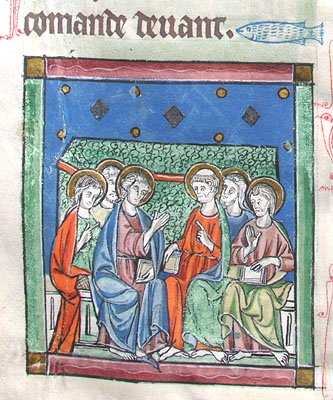 comande devant.